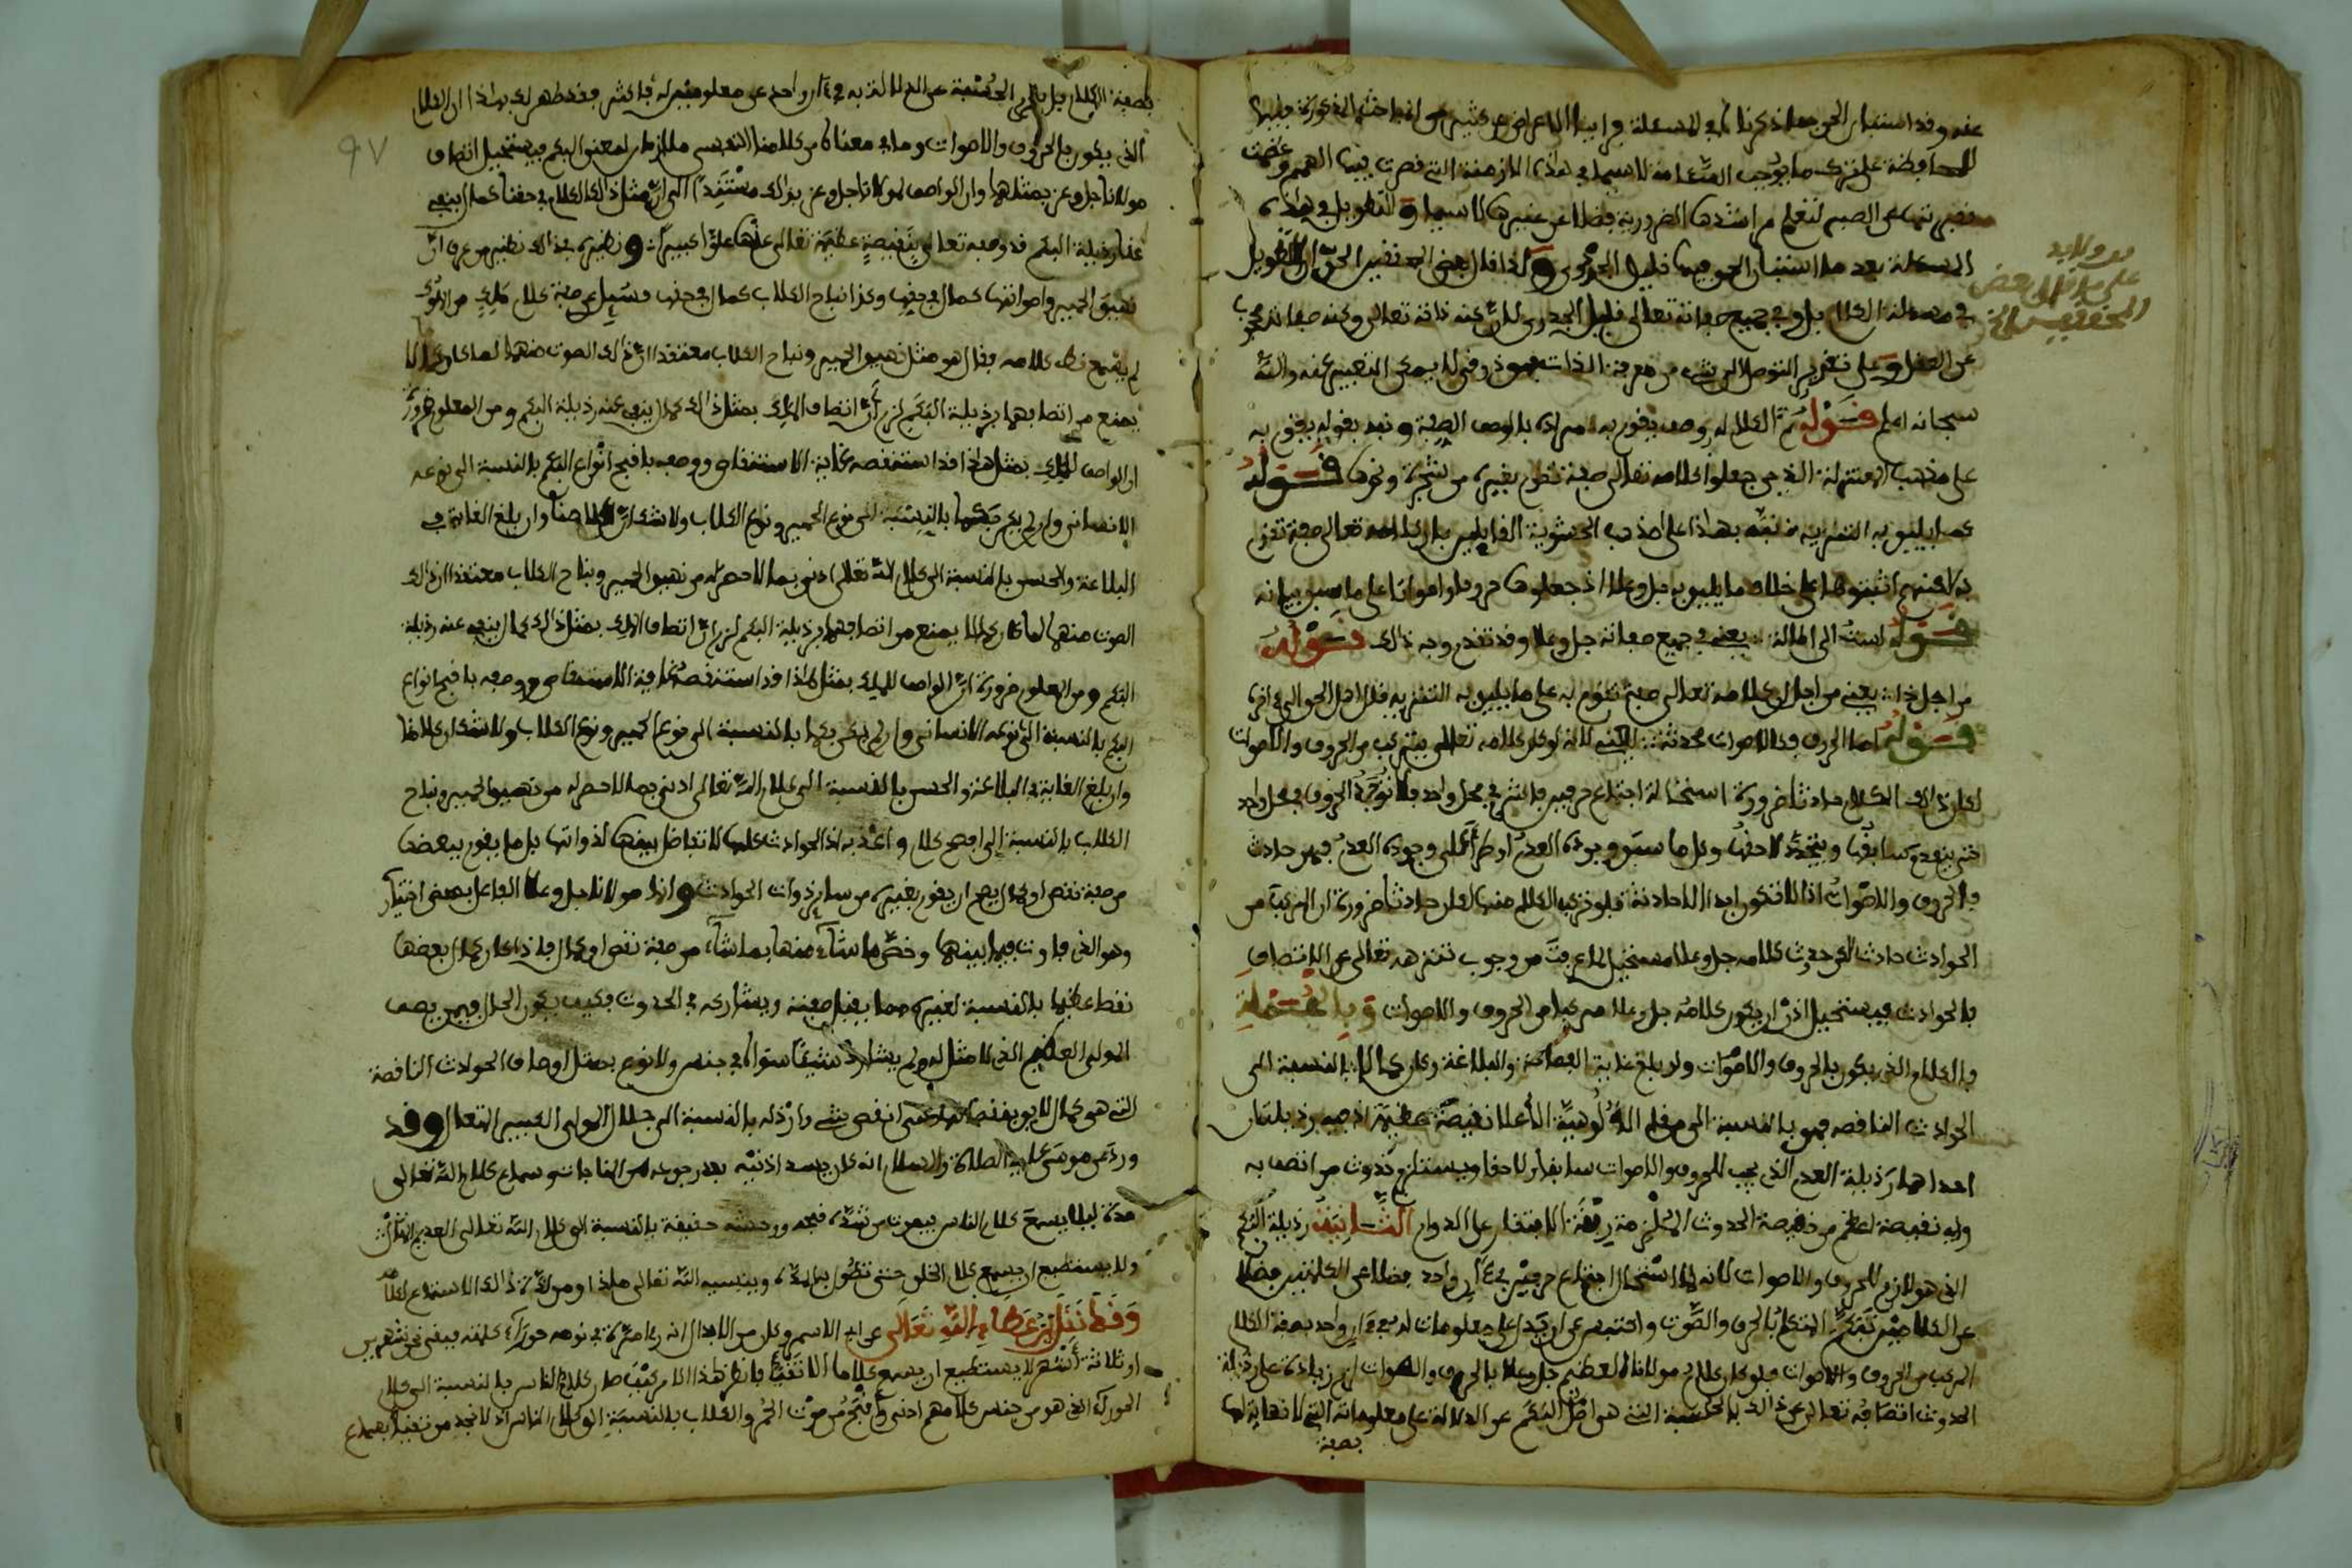 عنه وقد استبان الحق مما ذكرناه في المسئلة وإيثار الاعراض عن كثير من المباحث المذكورة فيها
للمحافظة على ترك ما يوجب السآمة لا سيما في هذه الازمنة التي قصرت فيها الهمم وعظمت
فيه عن الصبر لتعلم ما اشتدت الضرورية فضلا عن غيرها لا سيما والتطويل في هذه
المسئلة بعد ما استبان الحق فيها قليل الجدوى ولذا قال بعض المحققين الحق ان التطويل
في مسئلة الكلام بل وفي جميع صفاته تعالى قليل الجدوى لان كنه ذاته تعالى وكنه صفاته محجوب
عن العقل وعلى تقدير التوصل الى شيء من معرفة الذات فهو ذوقي لا يمكن التعبير عنه والله
سبحانه اعلم قوله ثم الكلام له وصف يقوم به مراده بالوصف الصفة ونبه بقوله يقوم به
على مذهب المعتزلة الذين جعلوا كلامه تعالى صفة تقوم بغيره من شجرة ونحوها قوله
كما يليق به التنزيه نبه بهذا على مذهب الحشوية القايلين بان كلامه تعالى صفة تقوم
به لكنهم اثبتوها على خلاف ما يليق به جل وعلا اذ جعلوها حروفا واصواتا على ما سبق بيانه
قوله لست الى المالة يعني في جميع صفاته جل وعلا وقد تقدم وجه ذلك قوله
من اجل ذا يعني من اجل ان كلامه تعالى صفة تقوم به على ما يليق به التنزيه قال اهل الحق الى اخره
قوله اما الحروف والاصوات محدثة يعني لانه لو كان كلامه تعالى يتركب من الحروف والاصوات
لكان ذلك الكلام حادثا ضرورة استحالة اجتماع حرفين فاكثر في محل واحد فلا توجد الحروف في محل واحد
حتى ينعدم سابقها ويتجدد لاحقها وكل ما سبق وجوده العدم او طرا على وجوده العدم فهو حادث
فالحروف والاصوات اذا لا تكون ابدا الا حادثة فلو تركب الكلام منها لكان حادثا ضرورة ان المركب من
الحوادث حادث لكن حدوث كلامه جل وعلا مستحيل لما عرفت من وجوب تنزهه تعالى عن الاتصاف
بالحوادث فيستحيل اذن ان يكون كلامه جل وعلا مركبا من الحروف والاصوات وبالجملة
فالكلام الذي يكون بالحروف والاصوات ولو بلغ غاية الفصاحة والبلاغة وكان كمالا بالنسبة الى
الحوادث الناقصة فهو بالنسبة الى مقام الالوهية الاعلا نقيصة عظيمة اذ فيه رذيلتان
احداهما رذيلة العدم الذي يجب للحروف والاصوات سابقا ولاحقا ويستلزم حدوث من اتصف به
واي نقيصة اعظم من نقيصة الحدوث الملزمة ربقة الافتقار على الدوام الثانية رذيلة البكم
الذي هو لازم للحروف والاصوات لانه لما استحال اجتماع حرفين في ءان واحد فضلا عن الكلمتين فضلا
عن الكلامين تبكم المتكلم بالحرف والصوت واحتبس عن ان يدل على معلومات له في ءان واحد بصفة الكلام
المركب من الحروف والاصوات فلو كان كلام مولانا العظيم جل وعلا بالحروف والاصوات لزم زيادة على رذيلة
الحدوث اتصافه تعالى عن ذلك بالحبسة التي هي اصل البكم عن الدلالة على معلوماته التي لا نهاية لها
بصفة
على ما قال بعض
المحققين الخ
97
بصفة الكلام بل بالحبسة عن الدلالة به في ءان واحد عن معلومين له فاكثر فقد ظهر لك بهذا ان الكلام
الذي يكون بالحروف والاصوات وما في معناه من كلامنا النفسي ملازمان لمعنى البكم فيستحيل اتصاف
مولانا جل وعز بمثلهما وان الواصف لمولانا جل وعز بذلك معتقدا ان مثل ذلك الكلام في حقنا كمال ينفي
عنا رذيلة البكم قد وصفه تعالى بنقيصة عظيمة تعالى عنها علوا كبيرا ونظيره في ذلك نظير من عرف ان
نهيق الحمير واصواتها كمال في حقها وكذا نباح الكلاب كمال في حقها فسئل عن صفة كلام ملك من الملوك
لم يسمع قط كلامه فقال هو مثل نهيق الحمير ونباح الكلاب معتقدا ان ذلك الصوت منهما لما كان كمالا
يمنع من اتصافهما برذيلة البكم لزم ان اتصاف الملك بمثل ذلك كمال ينفي عنه رذيلة البكم ومن المعلوم ضرورة
ان الواصف للملك بمثل هذا قد استنقصه غاية الاستنقاص ووصفه باقبح انواع البكم بالنسبة الى نوعه
الانساني وان لم يكن بكما بالنسبة الى نوع الحمير ونوع الكلاب ولا شك ان كلامنا وان بلغ الغاية في
البلاغة والحسن بالنسبة الى كلام الله تعالى ادنى بما لا حصر له من نهيق الحمير ونباح الكلاب معتقدا ان ذلك
الصوت منهما لما كان كمالا يمنع من اتصافهما برذيلة البكم لزم ان اتصاف الملك بمثل ذلك كمال ينفي عنه رذيلة
البكم ومن المعلوم ضرورة ان الواصف للملك بمثل هذا قد استنقصه غاية الاستنقاص ووصفه باقبح انواع
البكم بالنسبة الى نوعه الانساني وان لم يكن بكما بالنسبة الى نوع الحمير ونوع الكلاب ولا شك ان كلامنا
وان بلغ الغاية في البلاغة والحسن بالنسبة الى كلام الله تعالى ادنى بما لا حصر له من نهيق الحمير ونباح
الكلاب بالنسبة الى افصح كلام واعذبه اذ الحوادث كلها لا تفاضل بينها لذواتها بل ما يقوم ببعضها
من صفة نقص او كمال يصح ان يقوم بغيره من ساير ذوات الحوادث وانما مولانا جل وعلا الفاعل بمحض اختيار
وهو الذي فاوت فيما بينها وخص ما شاء منها بما شاء من صفة نقص او كمال فاذا كان كمال بعضها
نقصا عظيما بالنسبة لغيره مما يقبل صفته ويشاركه في الحدوث فكيف يكون الحال فيمن يصف
المولى العظيم الذي لا مثل له ولم يشارك شيئا سواه في جنس ولا نوع بمثل اوصاف الحوادث الناقصة
التي هي كمال لايق بنقصها انقص شيء وارذله بالنسبة الى جلال المولى الكبير المتعال وقد
ورد عن موسى عليه الصلاة والسلام انه كان يسد اذنيه بعد رجوعه من المناجاة وسماع كلام الله تعالى
مدة ليلا يسمع كلام الناس فيموت من شدة قبحه ووحشته حقيقة بالنسبة الى كلام الله تعالى العديم المثال
ولا يستطيع ان يسمع كلام الخلق حتى تطول المدة وينسيه الله تعالى لذة ذلك الاستماع لكلامه
وقد نقل ابن عطاء الله تعالى عن الاسمر وكان من الابدال انه راى مرة في نومه حوراء كلمته فبقي نحو شهرين
او ثلاثة اشهر لا يستطيع ان يسمع كلاما الا تقيا فانظر هذا الامر كيف صار كلام الناس بالنسبة الى كلام
الحوراء الذي هو من جنس كلامهم ادنى واقبح من صوت الحمر والكلاب بالنسبة الى كلام الناس اذ لا نجد من نتقيا بسماع